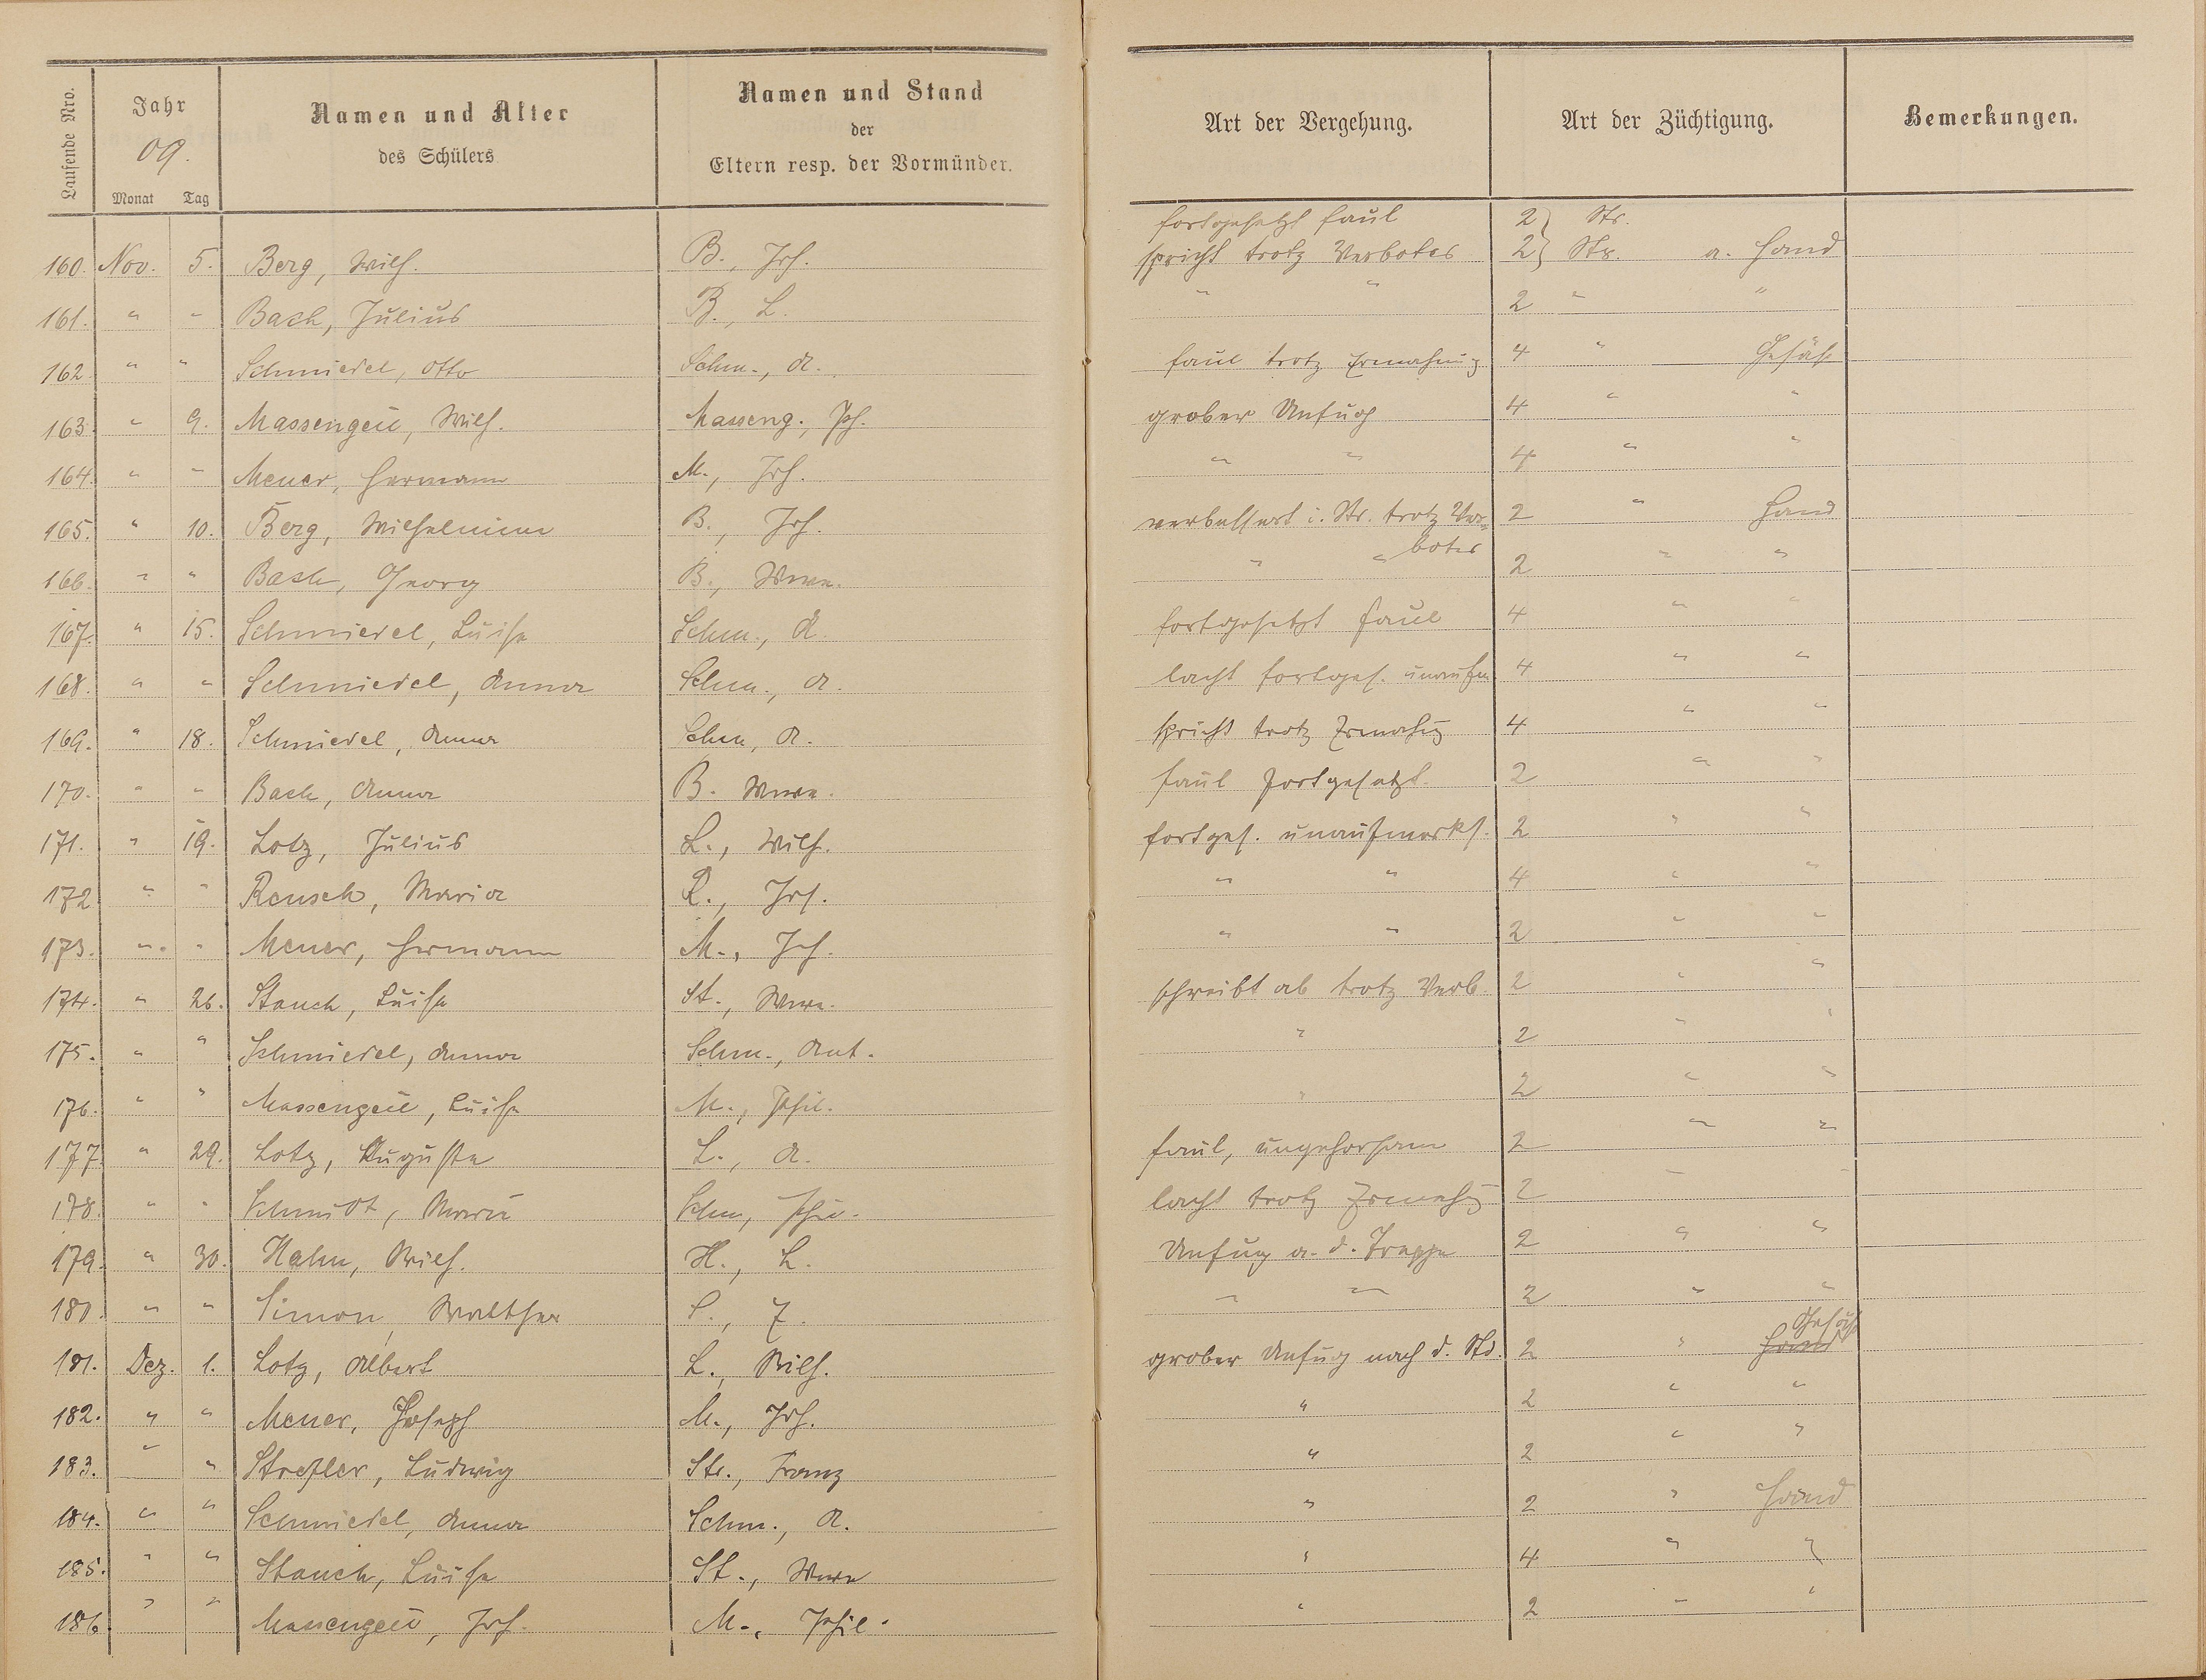 Laufende Nro.
Jahr
09.
Monat Tag
Namen und Alter
des Schülers
Namen und Stand
der
Eltern resp. der Vormünder.
Art der Vergehung.
Art der Züchtigung.
Bemerkungen.
fortgesetzt faul 2 } Str.
160. Nov. 5. Berg, Wilh. B., Joh. spricht trotz Verbotes 2 } Str. a. Hand
161. " " Bach, Julius B., L. " " 2 " "
162 " " Schmiedel, Otto Schm., A. faul trotz Ermahnung 4 " Gesäß
163. " 9. Massengeil, Wilh. Masseng., Ph. grober Unfug 4 " "
164. " " Meuer, Hermann M., Joh. " " 4 " "
165. " 10. Berg, Wilhelmine B., Joh. verbessert i. Str. trotz Ver= 2 " Hand
botes
166. " " Bach, Georg B., Wwe. " " 2 " "
167. " 15. Schmiedel, Luise Schm., A. fortgesetzt faul 4 " "
168. " " Schmiedel, Anna Schm., A. lacht fortges. unaufm 4 " "
169. " 18. Schmiedel, Anna Schm, A. spricht trotz Ermahng 4 " "
170. " " Bach, Anna B. Wwe. faul fortgesetzt. 2 " "
171. " 19. Lotz, Julius L., Wilh. fortges. unaufmerks. 2 " "
172 " " Reusch, Maria R., Joh. " " 4 " "
173. " " Meuer, Hermann M., Joh. " " 2 " "
174. " 26. Stauch, Luise St., Wwe. schreibt ab trotz Verb. 2 " "
175. " " Schmiedel, Anna Schm., Ant. " 2 " "
176. " " Massengeil, Luise M., Phil. " 2 " "
177. " 29. Lotz, Auguste L., A. faul, ungehorsam 2 " "
178. " " Schmidt, Marie Schm, Phil. lacht trotz Ermahng 2 " "
179. " 30. Hahn, Wilh. H., L. Unfug a. d. Treppe 2 " "
180. " " Simon, Walther S., F. " " 2 " "
Gesäß
181. Dez. 1. Lotz, Albert L., Wilh. grober Unfug nach d. Std. 2 " Hand
182. " " Meuer, Joseph M., Joh. " 2 " "
183. " " Strefler, Ludwig Str., Franz " 2 " "
184. " " Schmiedel, Anna Schm., A. " 2 " Hand
185. " " Stauch, Luise St., Wwe " 4 " "
186 " " Massengeil, Joh. M., Phil. " 2 " "